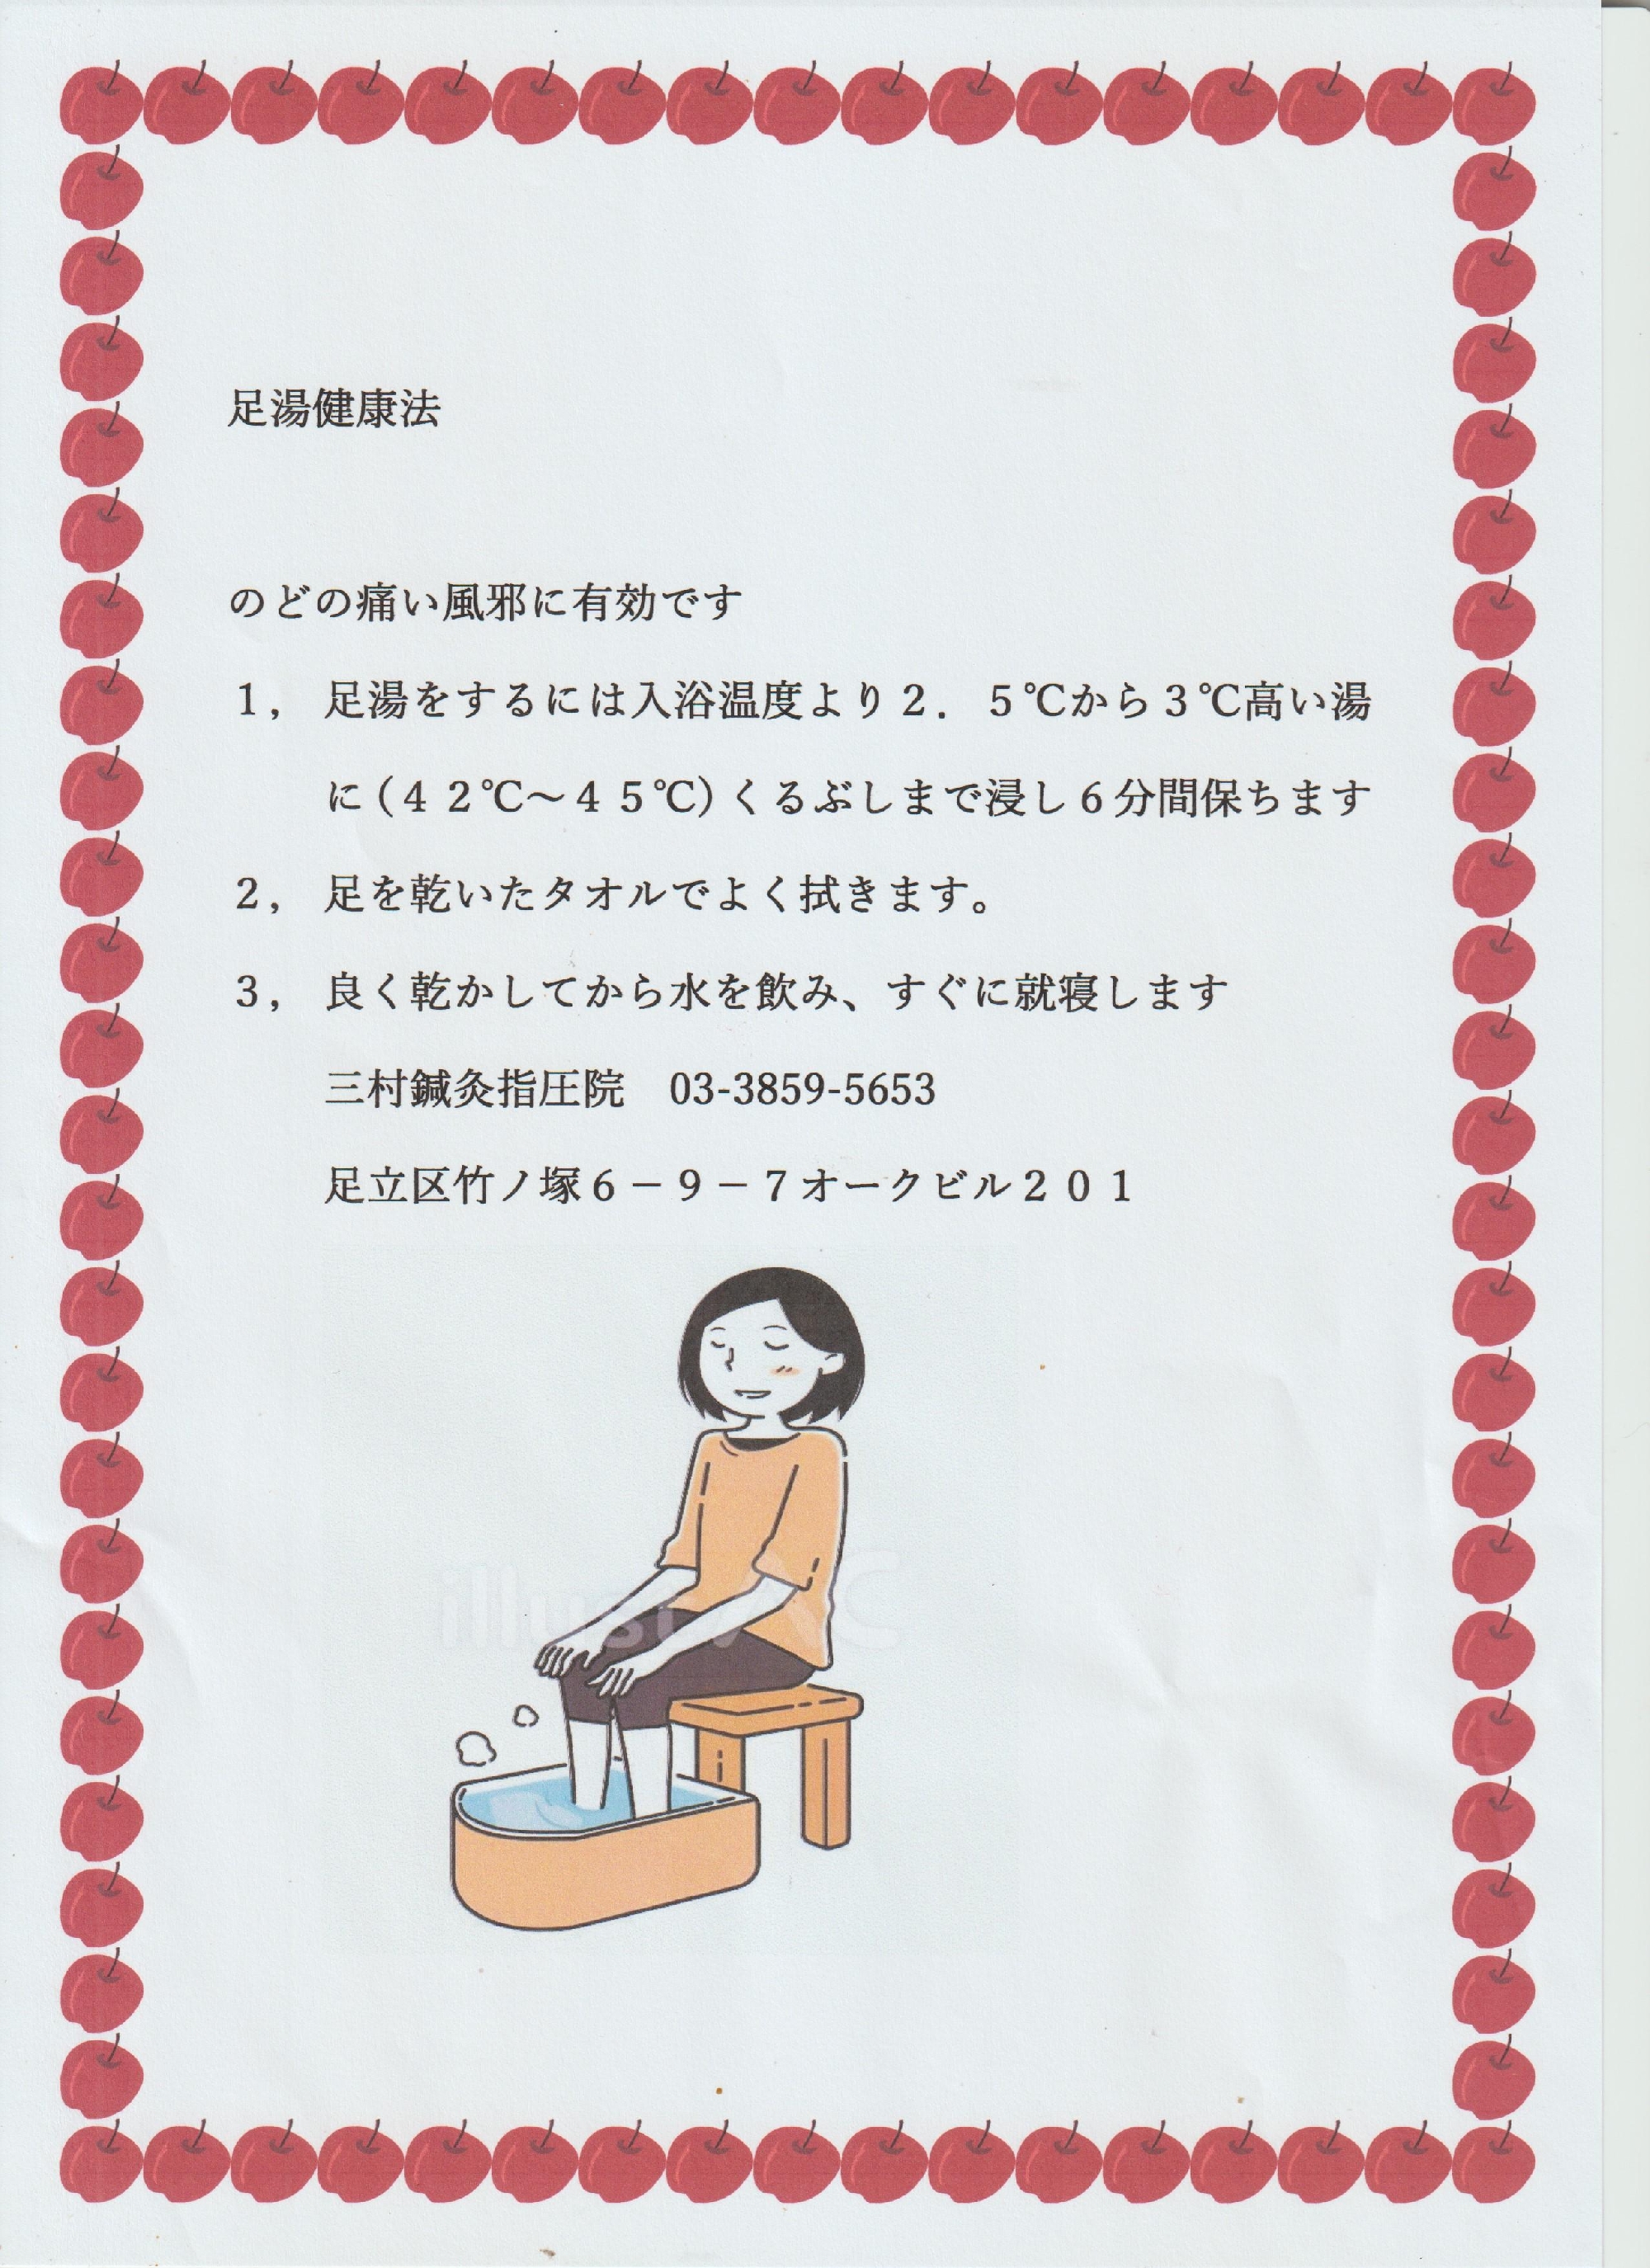 足湯健康法
のどの痛い風邪に有効です
１，　足湯をするには入浴温度より２．５℃から３℃高い湯
に（４２℃～４５℃）くるぶしまで浸し６分間保ちます
２，　足を乾いたタオルでよく拭きます。
３，　良く乾かしてから水を飲み、すぐに就寝します
三村鍼灸指圧院　03-3859-5653
足立区竹ノ塚６－９－７オークビル２０１